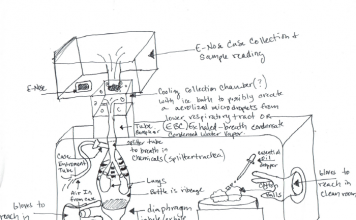 E-Nose Case Collection +
Sample reading
E-Nose
Cooling collection Chamber(?)
with ice bath to possibly create
a aerolized microdroplets from
lower respiratory tract or
(EBC) Exhaled-breath condensate
Condensed Water Vapor
Tube
splitter tube
to breath in
chemicals (splitter trachea)
Case
Environment
Tube
Air In
from case
Lungs
Bottle is ribcage
diaphragm
Essential
Oil
dropper
Cotton
balls
blows to
reach in
blows
to
reach in